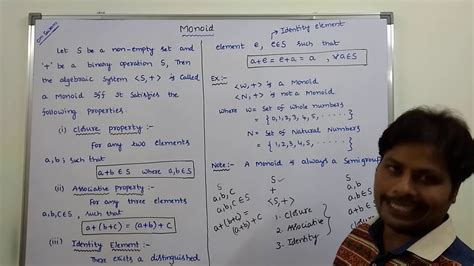 Monoid
Let S be a non-empty set and
'+' be a binary operation S, Then
the algebraic System <S,+> is Called
a Monoid Iff It Satisfies the
following Properties.
(i) closure property :-
For any two elements
a,b ; such that
a+b ∈ S where a,b ∈ S
(ii) Associative Property :-
For any three elements
a,b,c ∈ S, such that
a+(b+c) = (a+b)+c
(iii) Identity Element :-
There exists a distinguished
Identity element
element e, e∈S such that
a+e = e+a = a, ∀a∈S
Ex:-
<W,+> is a Monoid
<N,+> is not a Monoid
where W = Set of Whole numbers
= {0,1,2,3,4,5,.....}
N = Set of Natural Numbers
= {1,2,3,4,5,.....}
Note:- A Monoid is always a Semigroup
S
a,b,c
a,b,c ∈ S
a+(b+c)
=(a+b)+c
S
+
<S,+>
1. Closure
2. Associative
3. Identity
S
a,b